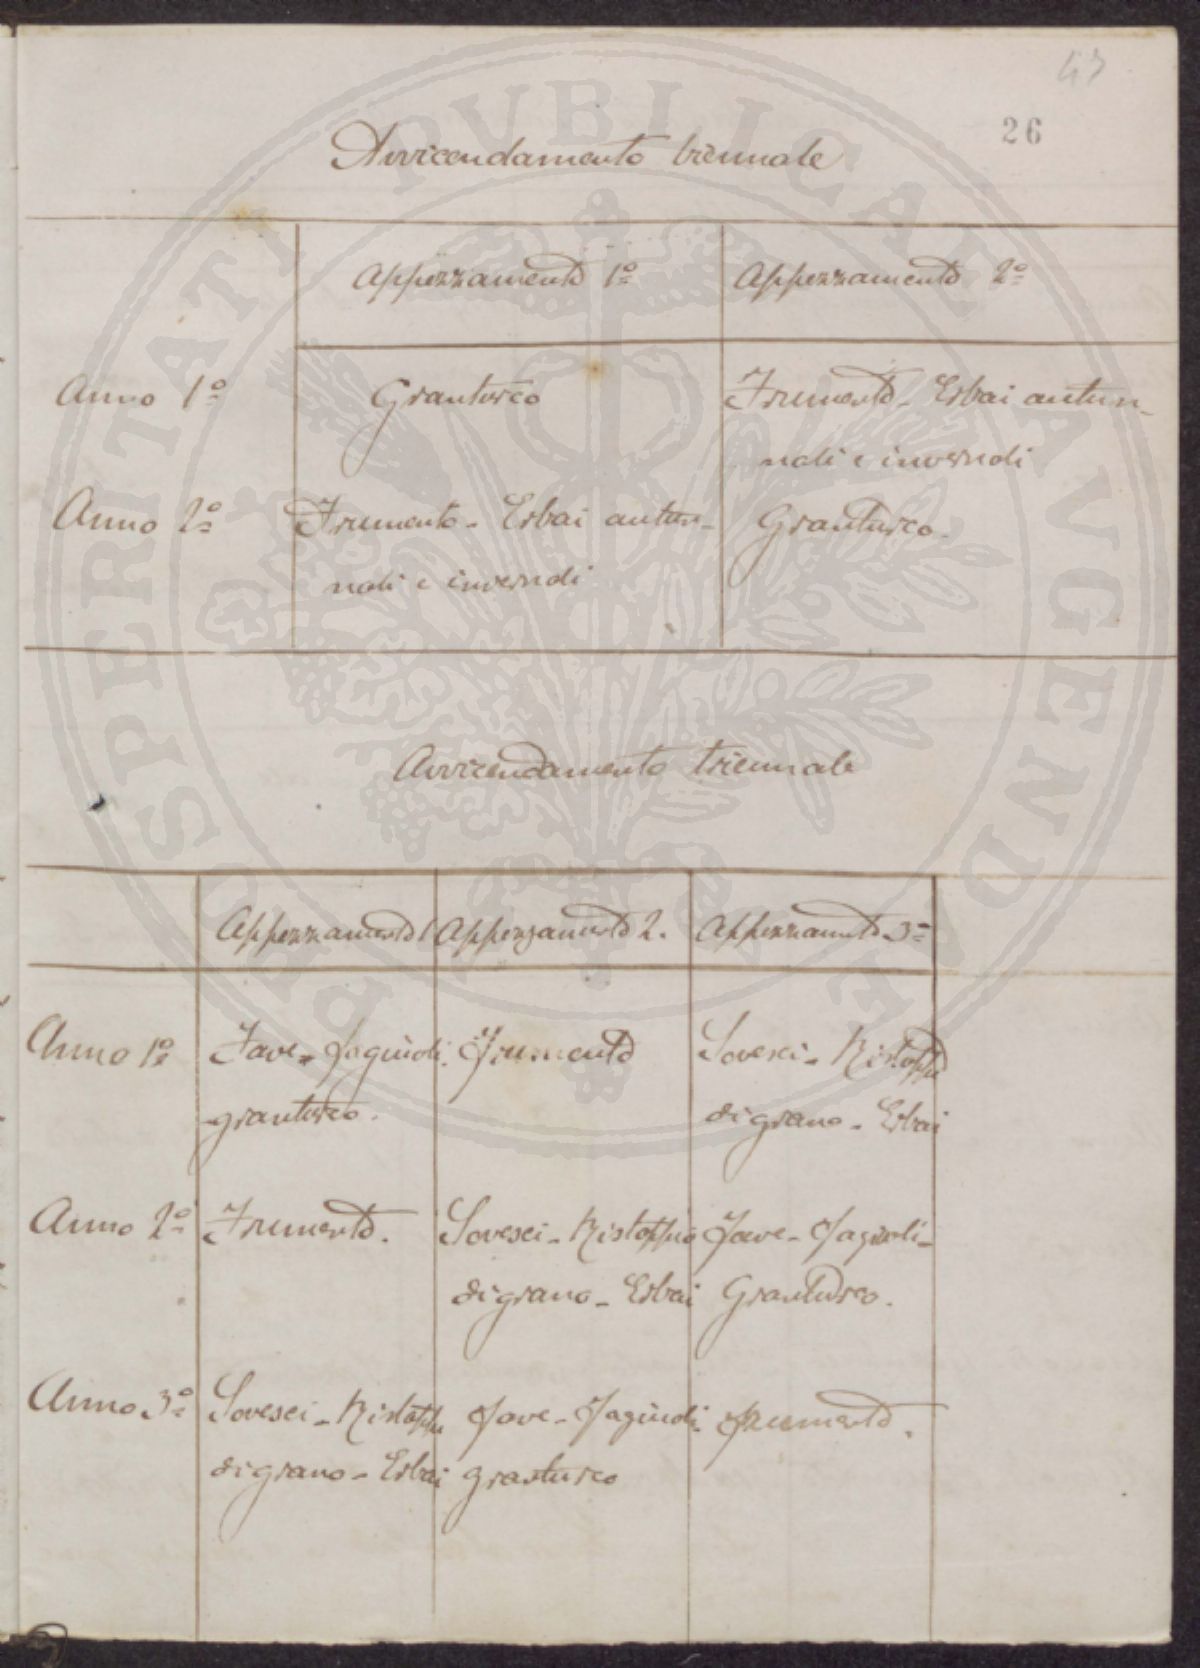 43
26
Avvicendamento biennale
Appezzamento 1º Appezzamento 2º
Anno 1º Granturco Frumento - Erbai autun-
nali e invernali
Anno 2º Frumento - Erbai autun- Granturco.
nali e invernali
Avvicendamento triennale
Appezzamento 1 Appezzamento 2. Appezzamento 3º
Anno 1º Fave - Fagiuoli. Frumento Sovesci - Ristoppio
granturco. di grano - Erbai
Anno 2º Frumento. Sovesci - Ristoppio Fave - Fagiuoli -
di grano - Erbai Granturco.
Anno 3º Sovesci - Ristoppio Fave - Fagiuoli - Frumento.
di grano - Erbai granturco
PROSPERITATI PVBLICAE AVGENDAE